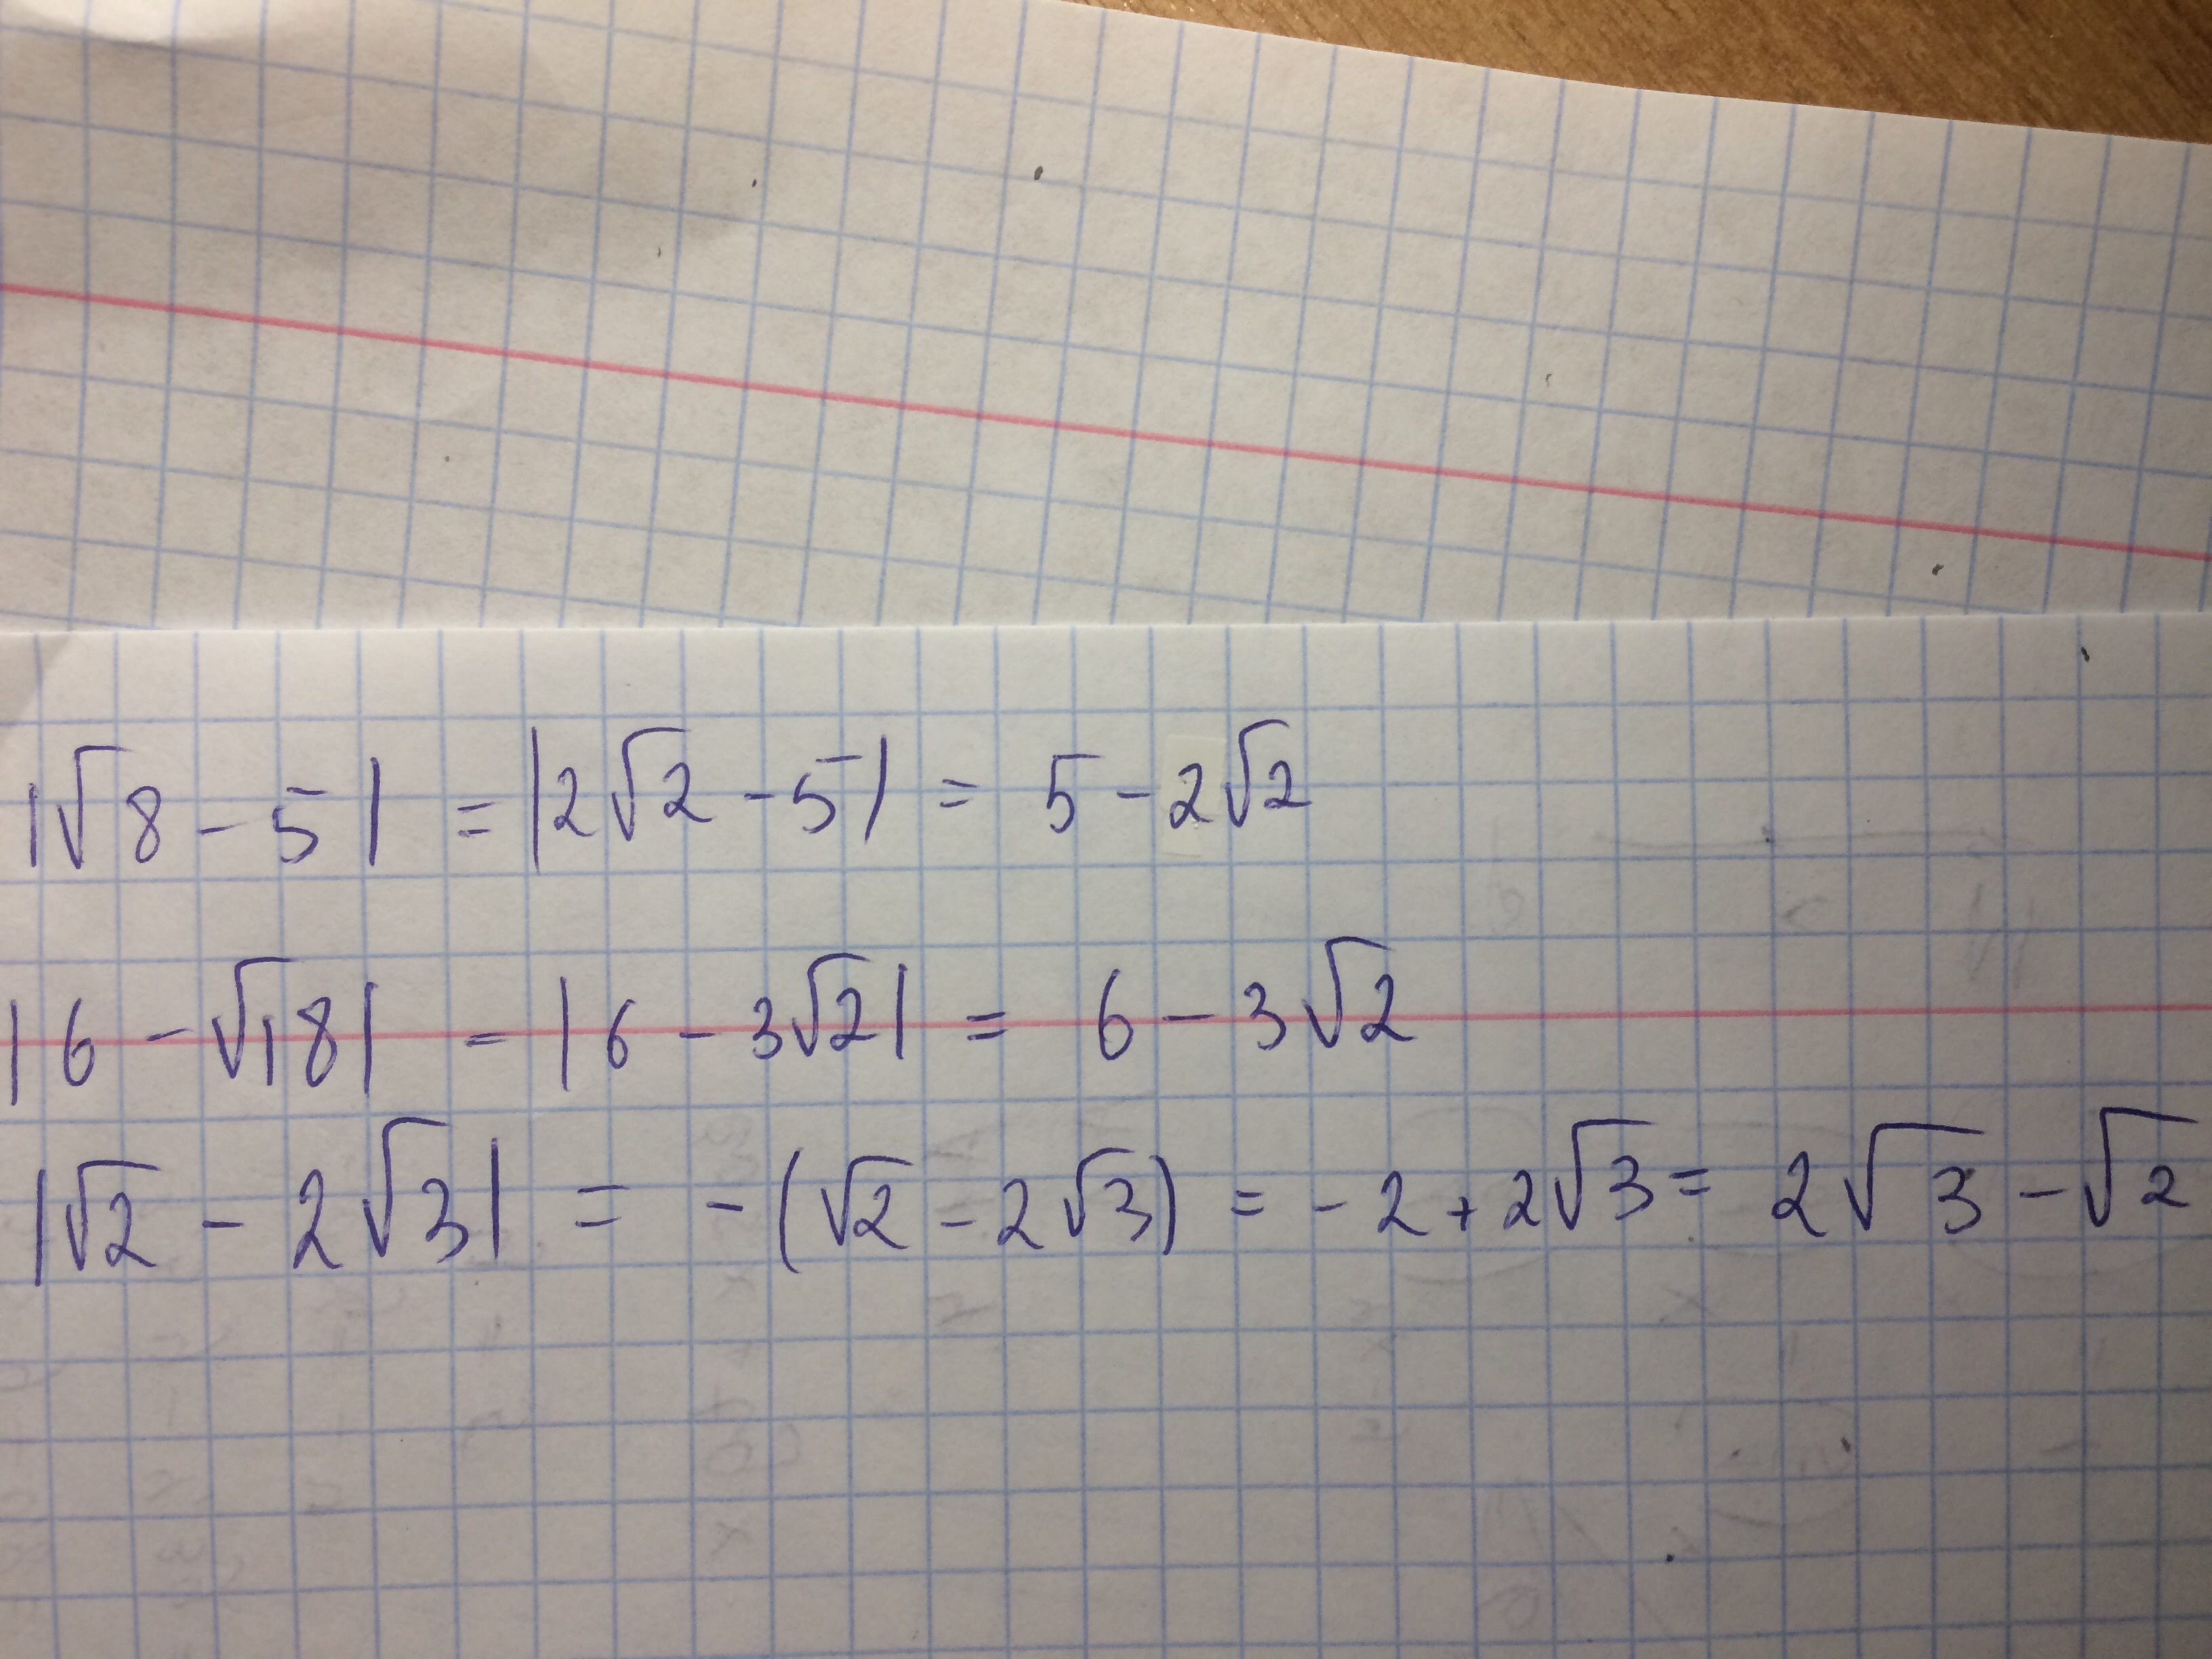 |√8 - 5| = |2√2 - 5| = 5 - 2√2
|6 - √18| = |6 - 3√2| = 6 - 3√2
|√2 - 2√3| = -(√2 - 2√3) = -2 + 2√3 = 2√3 - √2